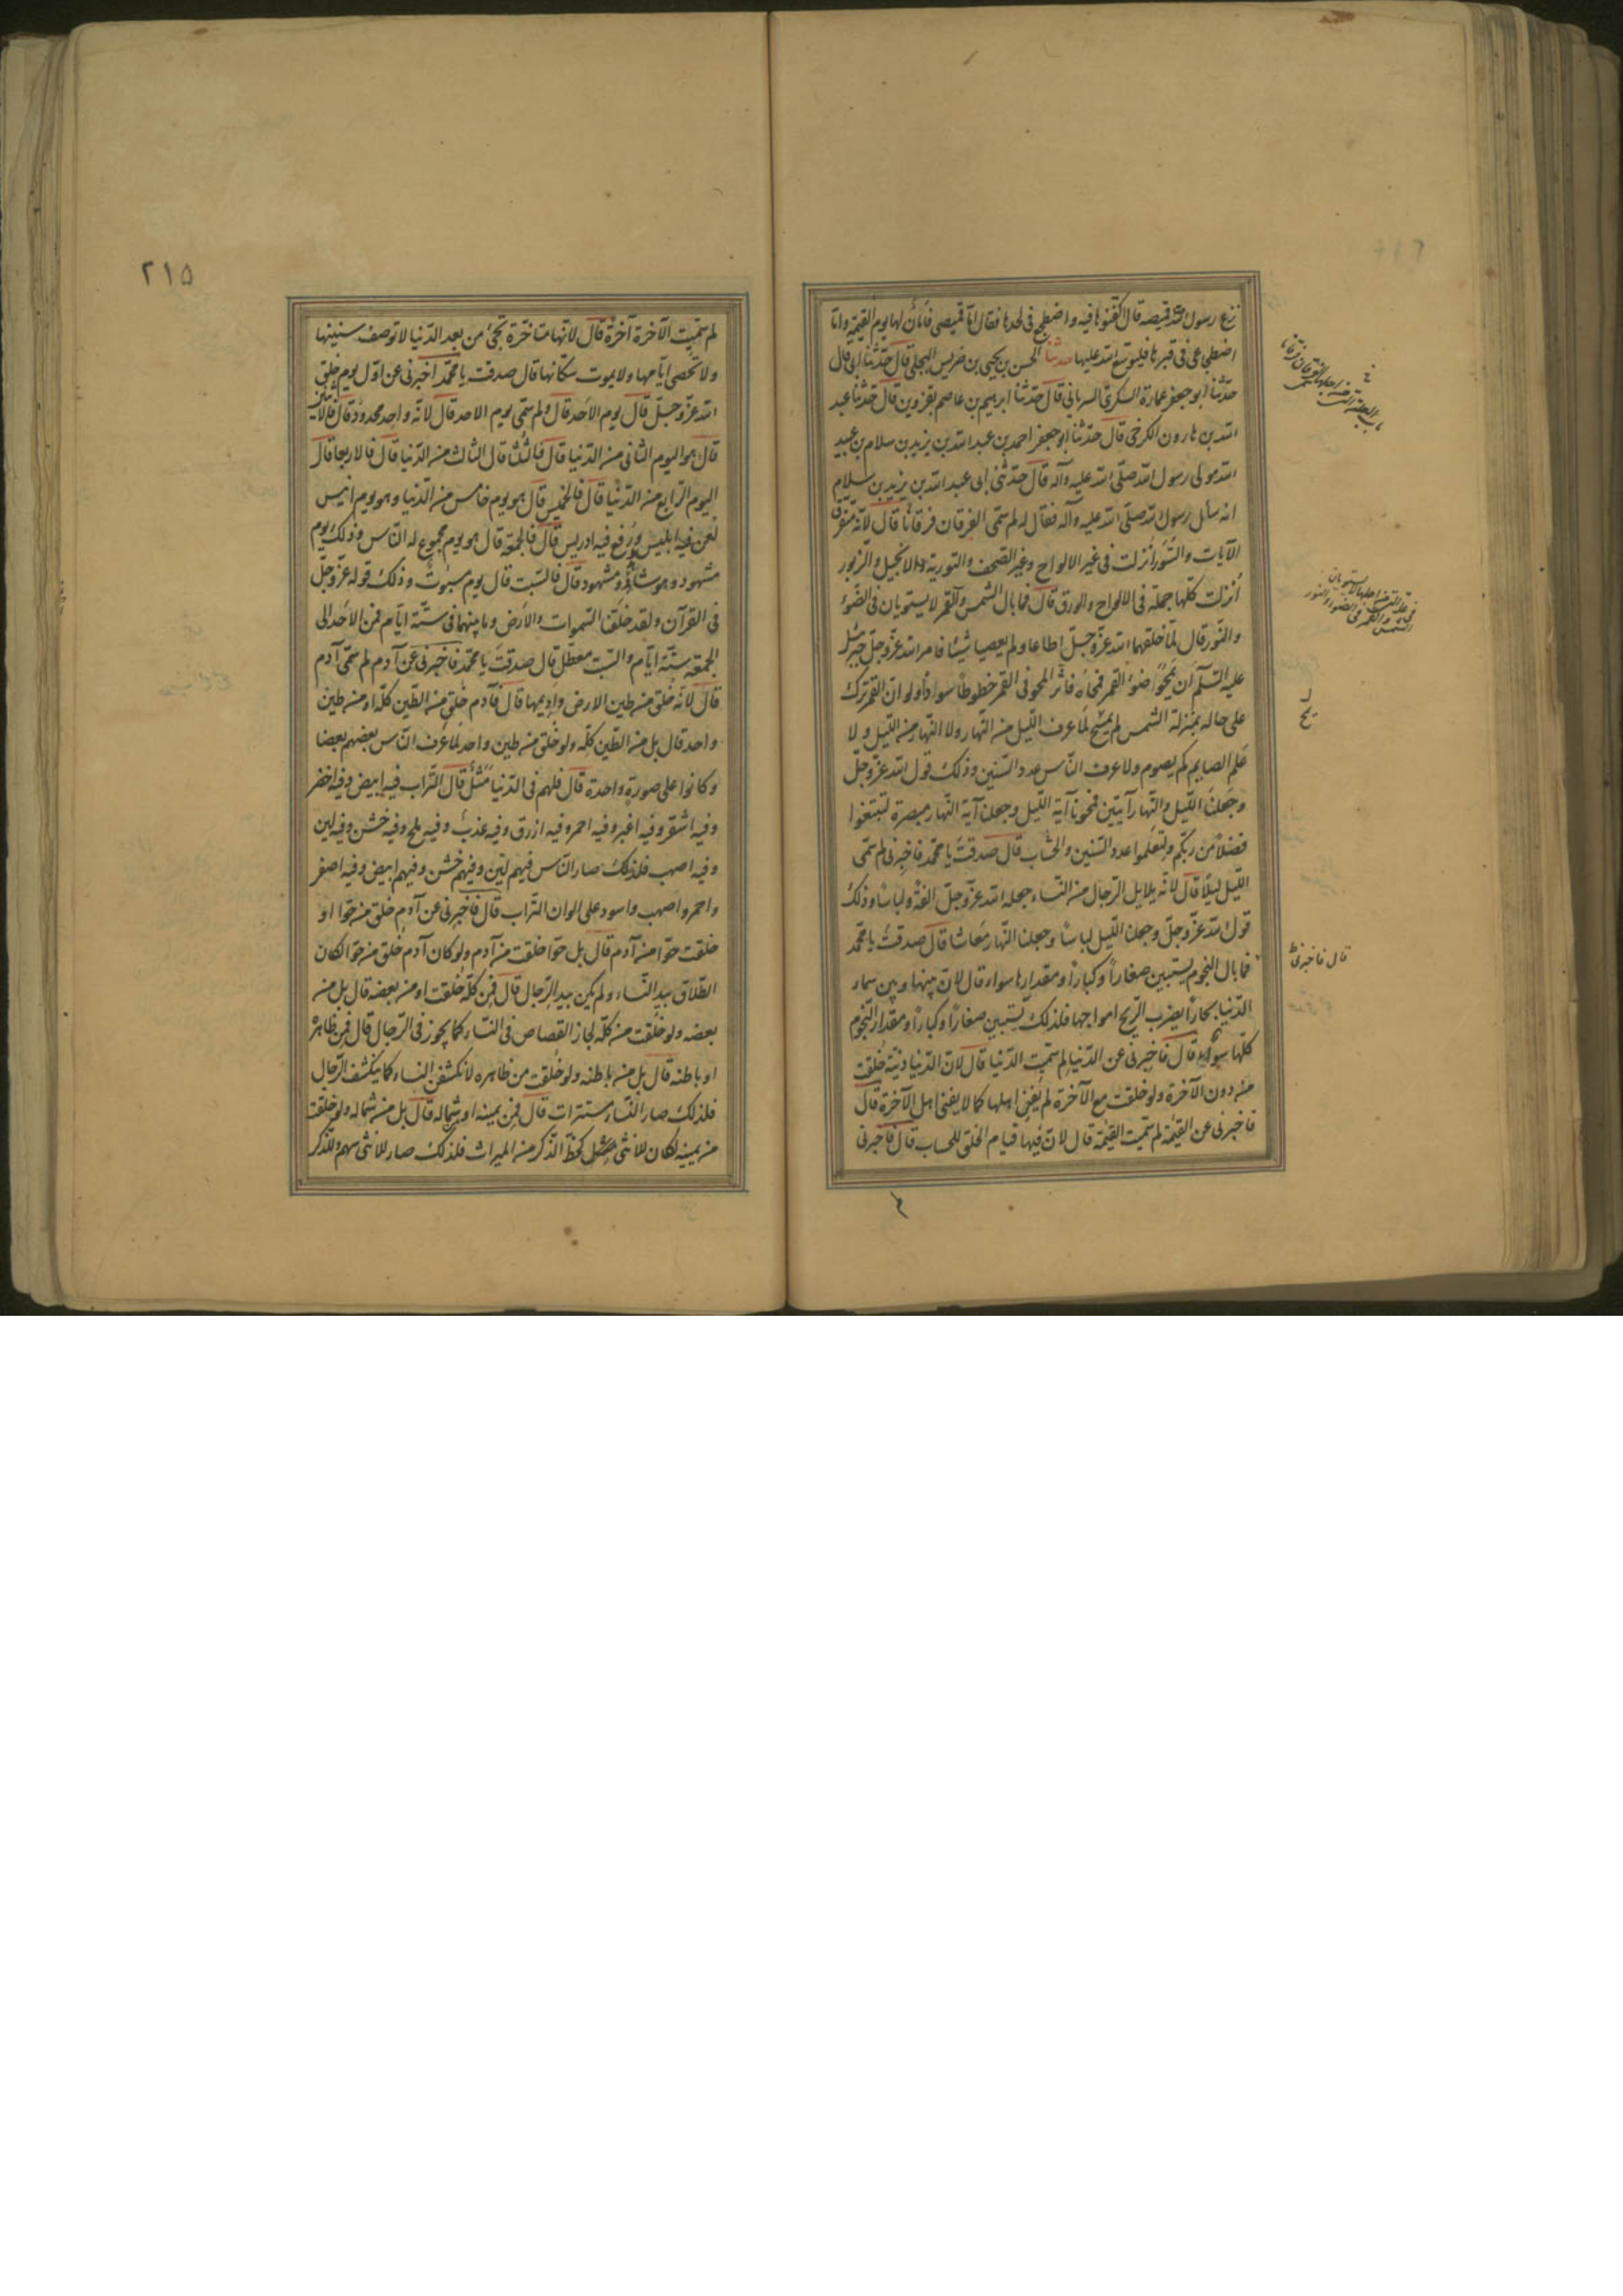 نزع رسول الله قميصه قال كفنوها فيه واضطجع فى لحدها فقال اما قميصى فامان لها يوم القيمة واما
اضطجاعى فى قبرها فليوسع الله عليها حدثنا الحسن بن يحيى بن ضريس البجلى قال حدثنا ابى قال
حدثنا ابو جعفر عمارة السكرى السريانى قال حدثنا ابرهيم بن عاصم بقزوين قال حدثنا عبد
الله بن هارون الكرخى قال حدثنا ابو جعفر احمد بن عبد الله بن يزيد بن سلام بن عبيد
الله مولى رسول الله صلى الله عليه وآله قال حدثنى ابى عبد الله بن يزيد بن سلام
انه سأل رسول الله صلى الله عليه وآله فقال له لم سمى الفرقان فرقانا قال لانه متفرق
الآيات والسور انزلت فى غير الالواح وغير الصحف والتورية والانجيل والزبور
أنزلت كلها جملة فى الالواح والورق قال فما بال الشمس والقمر لا يستويان فى الضوء
والنور قال لما خلقهما الله عز وجل اطاعا ولم يعصيا شيئا فامر الله عز وجل جبرئيل
عليه السلم أن يمحو ضوء القمر فمحاه فاثر المحو فى القمر خطوطا سوادا ولو ان القمر ترك
على حاله بمنزلة الشمس لم يمح لما عرف الليل من النهار ولا النهار من الليل ولا
علم الصايم كم يصوم ولا عرف الناس عدد السنين وذلك قول الله عز وجل
وجعلنا الليل والنهار آيتين فمحونا آية الليل وجعلنا آية النهار مبصرة لتبتغوا
فضلا من ربكم ولتعلموا عدد السنين والحساب قال صدقت يا محمد فاخبرنى لم سمى
الليل ليلا قال لانه يلايل الرجال من النساء جعله الله عز وجل الفة ولباسا وذلك
قول الله عز وجل وجعلنا الليل لباسا وجعلنا النهار معاشا قال صدقت يا محمد
فما بال النجوم يستبين صغارا وكبارا ومقدارها سواء قال لان بينها وبين سماء
الدنيا بحارا يضرب الريح امواجها فلذلك تستبين صغارا وكبارا ومقدار النجوم
كلها سواء قال فاخبرنى عن الدنيا لم سميت الدنيا قال لان الدنيا دنية خلقت
من دون الآخرة ولو خلقت مع الآخرة لم يفن اهلها كما لا يفنى اهل الآخرة قال
فاخبرنى عن القيمة لم سميت القيمة قال لان فيها قيام الخلق للحساب قال فاخبرنى
قال فاخبرنى
٢١٥
لم سميت الآخرة آخرة قال لانها متاخرة تجئ من بعد الدنيا لا توصف سنينها
ولا تحصى ايامها ولا يموت سكانها قال صدقت يا محمد اخبرنى عن اول يوم خلق
الله عز وجل قال يوم الاحد قال ولم سمى يوم الاحد قال لانه واحد محدود قال فالاثنين
قال هو اليوم الثانى من الدنيا قال فالثلث قال الثالث من الدنيا قال فالاربعا قال
اليوم الرابع من الدنيا قال فالخميس قال هو يوم خامس من الدنيا وهو يوم انيس
لعن فيه ابليس ورفع فيه ادريس قال فالجمعة قال هو يوم مجموع له الناس وذلك يوم
مشهود وهو شاهد ومشهود قال فالسبت قال يوم مسبوت وذلك قوله عز وجل
فى القرآن ولقد خلقنا السموات والارض وما بينهما فى ستة ايام فمن الاحد الى
الجمعة ستة ايام والسبت معطل قال صدقت يا محمد فاخبرنى عن آدم لم سمى آدم
قال لانه خلق من طين الارض واديمها قال فآدم خلق من الطين كله او من طين
واحد قال بل من الطين كله ولو خلق من طين واحد لما عرف الناس بعضهم بعضا
وكانوا على صورة واحدة قال فلهم فى الدنيا مثل قال التراب فيه ابيض وفيه اخضر
وفيه اشقر وفيه اغبر وفيه احمر وفيه ازرق وفيه عذب وفيه ملح وفيه خشن وفيه لين
وفيه اصهب فلذلك صار الناس فيهم لين وفيهم خشن وفيهم ابيض وفيه اصفر
واحمر واصهب واسود على الوان التراب قال فاخبرنى عن آدم خلق من حوا او
خلقت حوا من آدم قال بل حوا خلقت من آدم ولو كان آدم خلق من حوا لكان
الطلاق بيد النساء ولم يكن بيد الرجال قال فمن كله خلقت او من بعضه قال بل من
بعضه ولو خلقت من كله لجاز القصاص فى النساء كما يجوز فى الرجال قال فمن ظاهره
او باطنه قال بل من باطنه ولو خلقت من ظاهره لانكشفن النساء كما ينكشف الرجال
فلذلك صار النساء مستترات قال فمن يمينه او شماله قال بل من شماله ولو خلقت
من يمينه لكان للانثى مثل كحظ الذكر من الميراث فلذلك صار للانثى سهم وللذكر